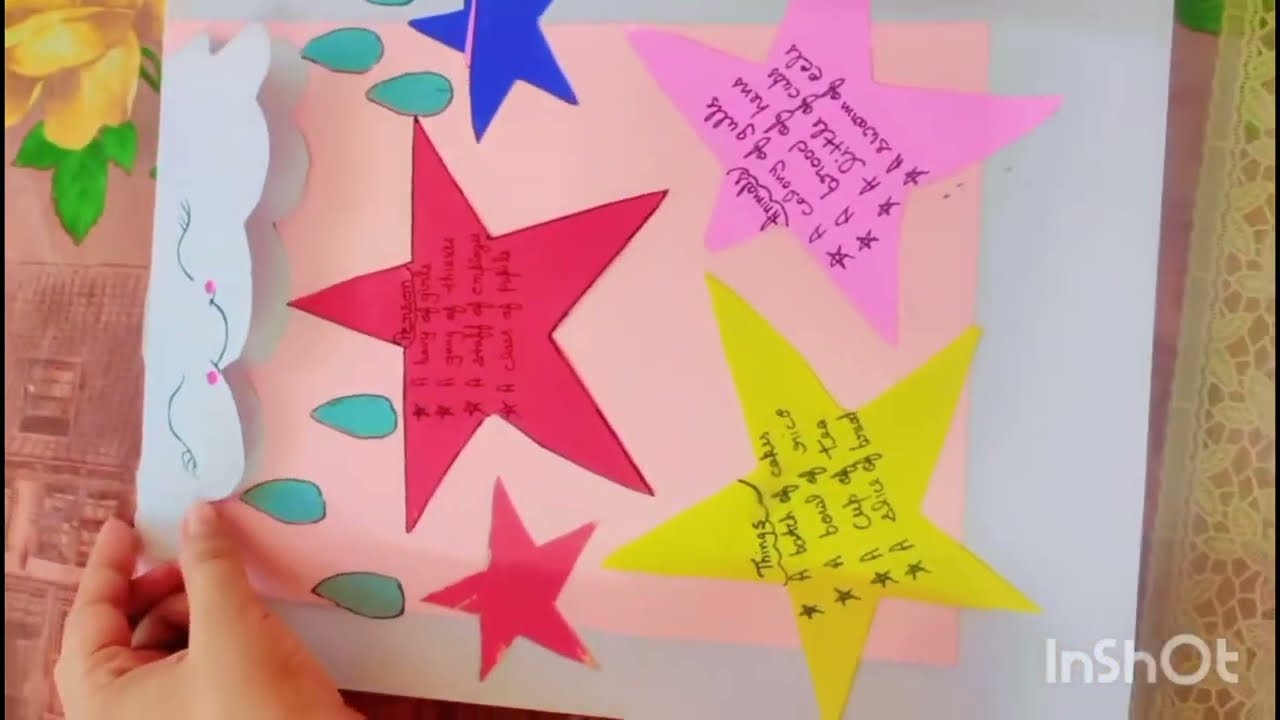 Person
★ A of girls
★ A gang of thieves
★ A staff of employee
★ A class of pupils
Things
★ A batch of cakes
★ A bowl of rice
★ A Cup of Tea
★ A slice of bread
Animals
★ A colony of gulls
★ A brood of hens
★ A little of cubs
★ A swarm of eels
InShOt